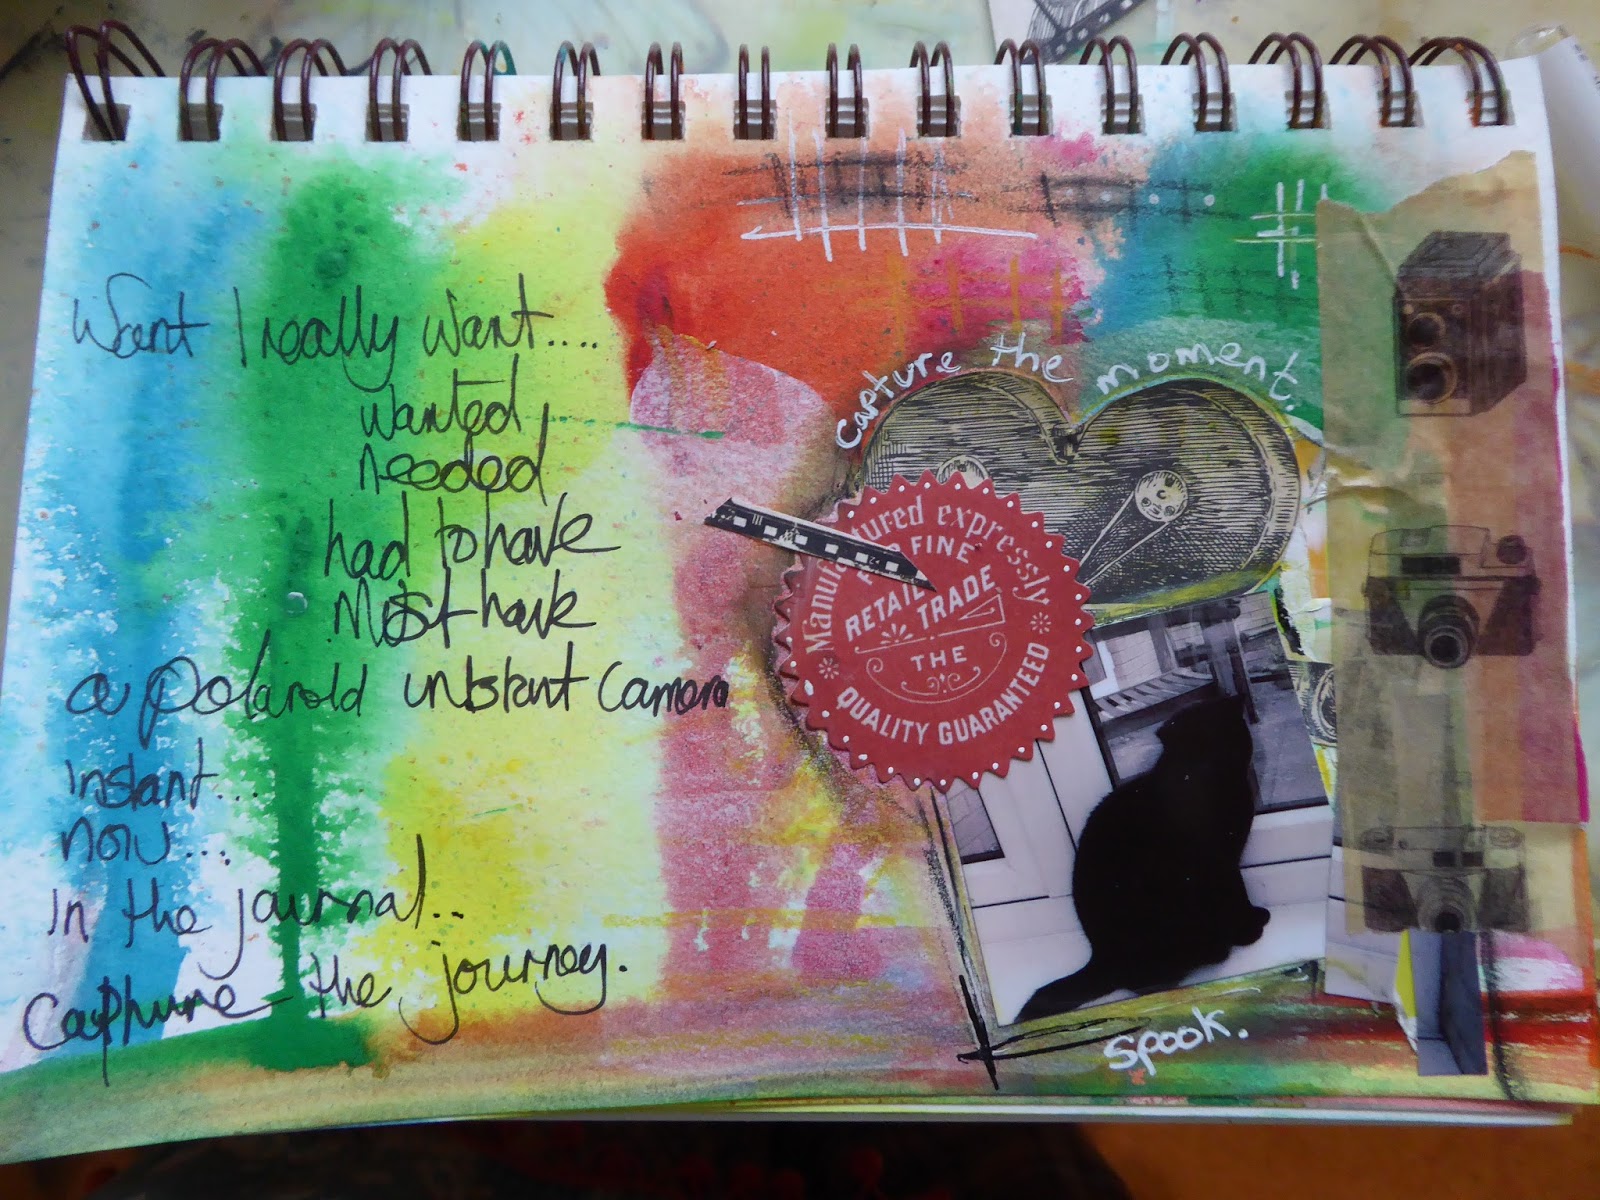 Want I really want....
wanted
needed
had to have
Must have
a polaroid instant camera
instant...
now...
in the journal..
Capture - the journey.
capture the moment.
Manufactured expressly
FINE
RETAIL
TRADE
THE
QUALITY GUARANTEED
Spook.